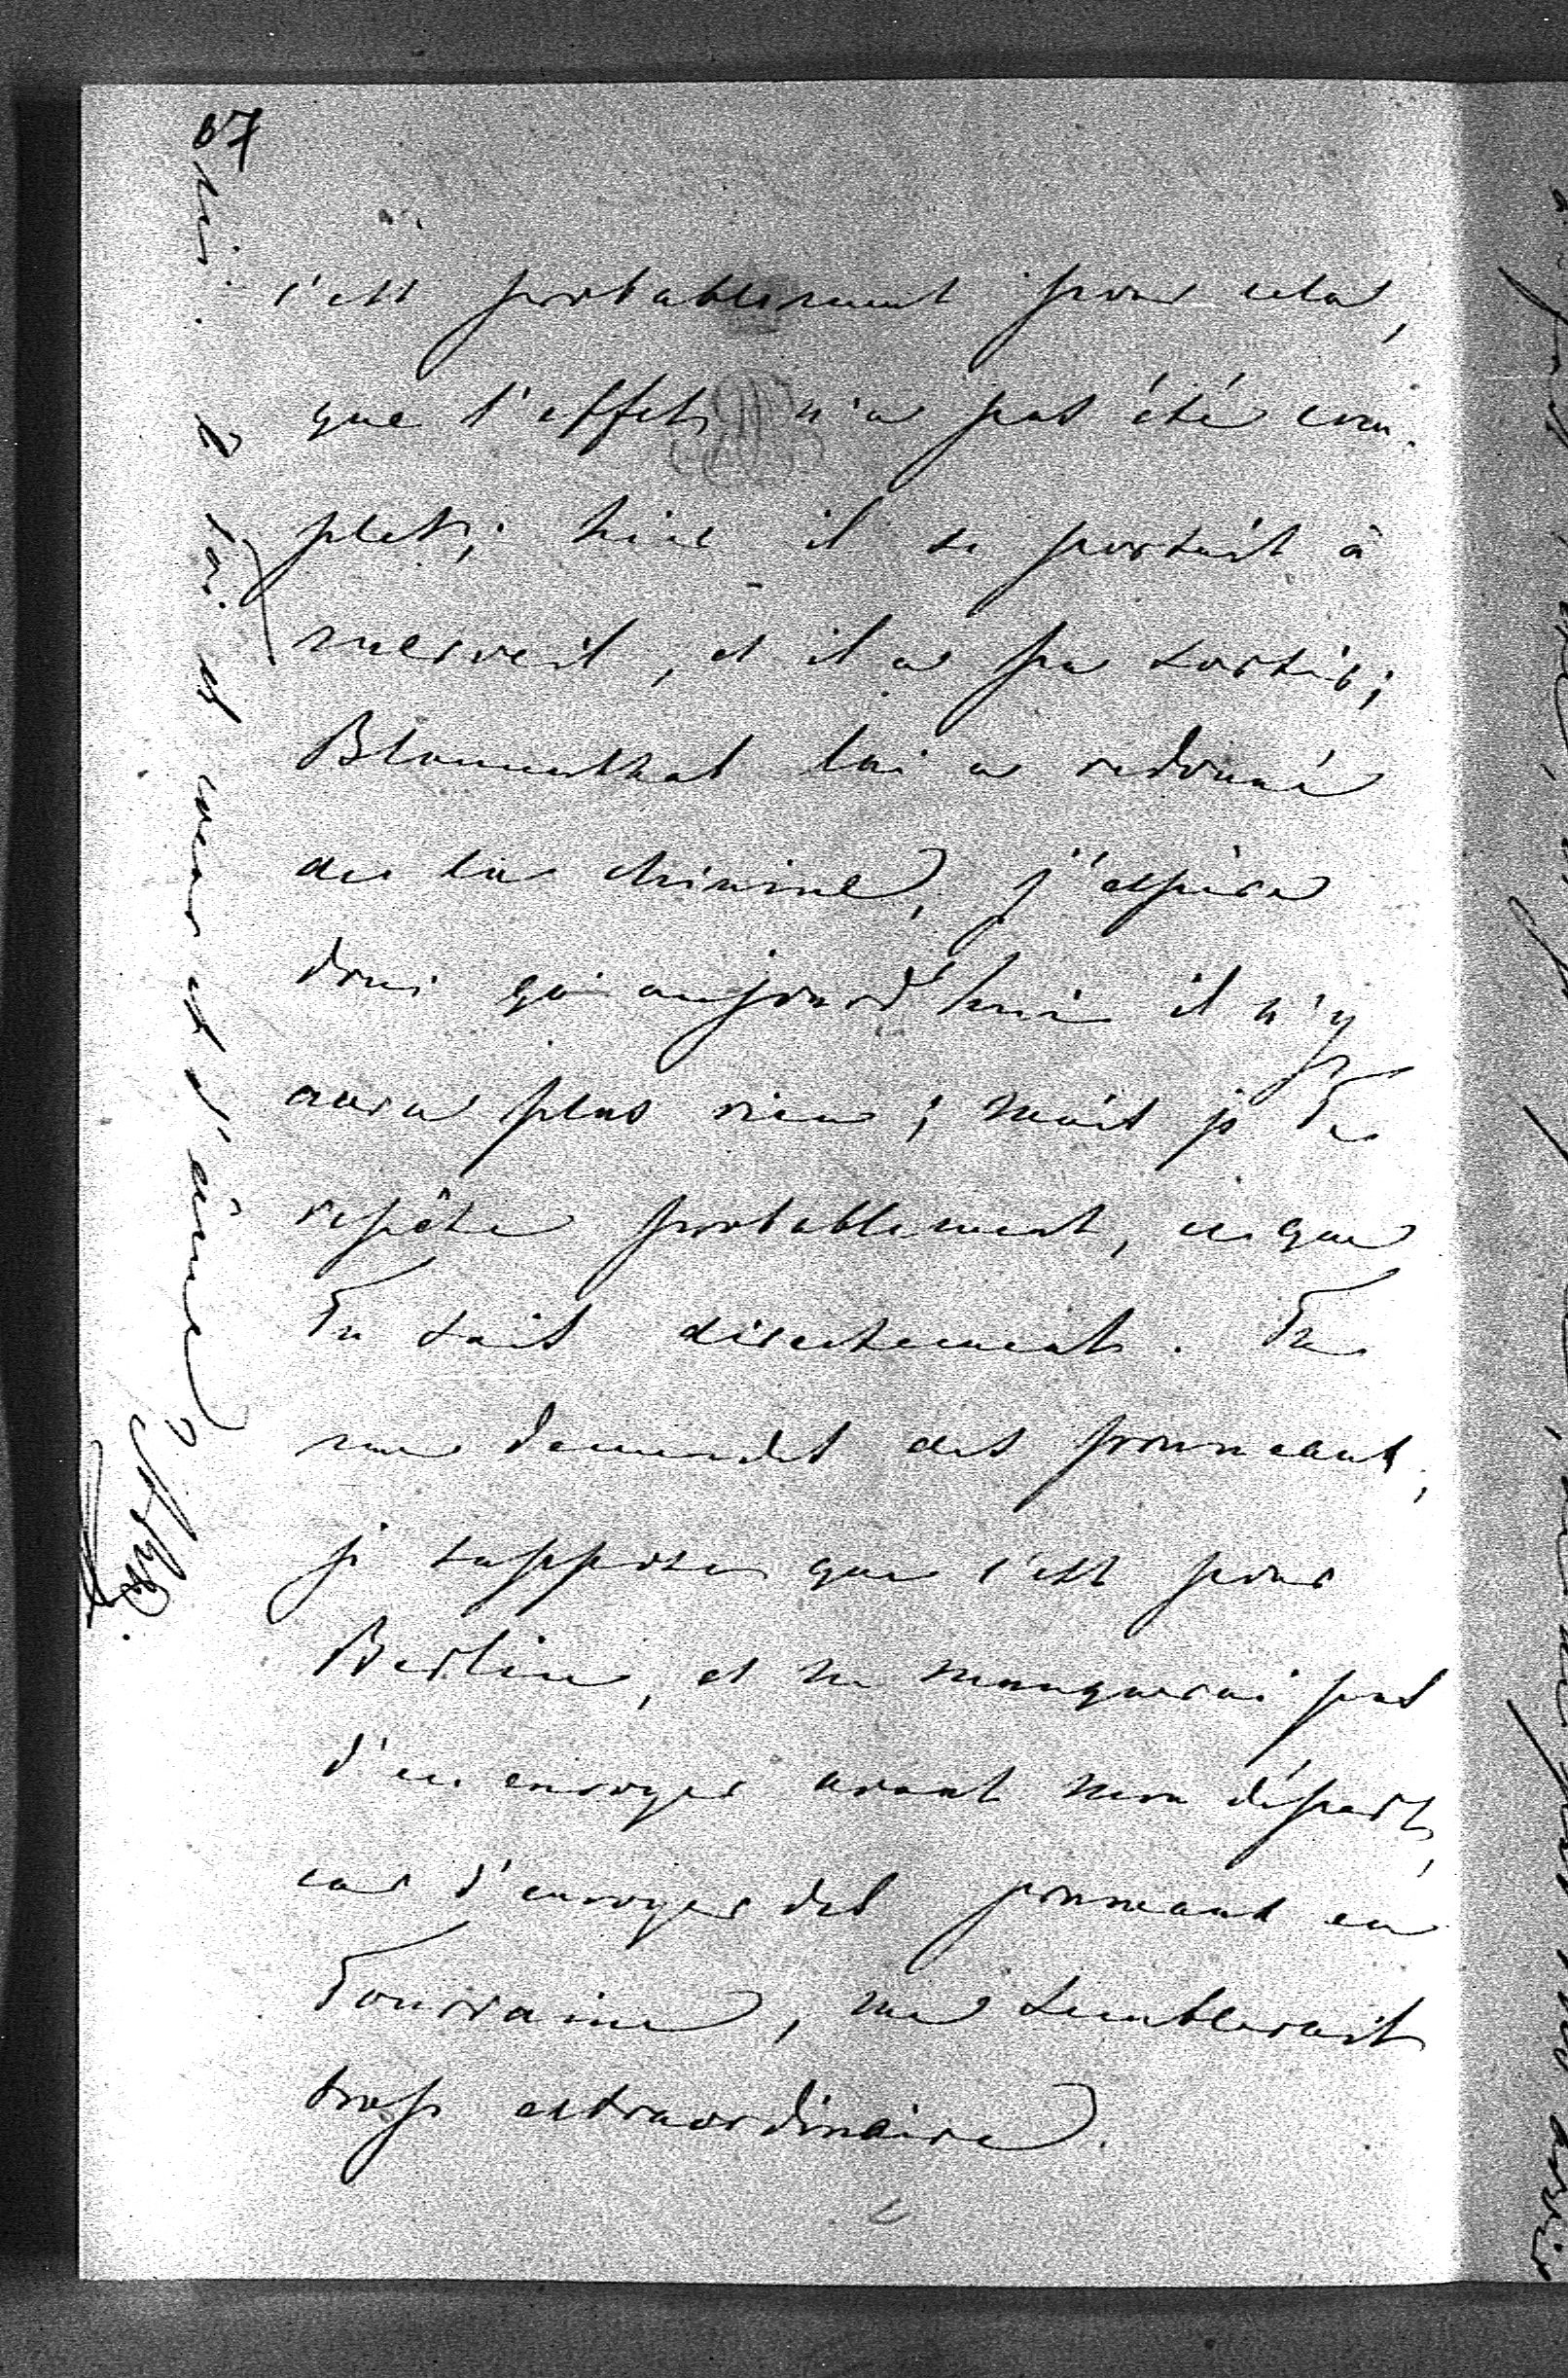 67
c'est probablement pour cela,
que l'effet n'a pas été com-
plet; hier il se portait à
merveil, et il a pu sortir;
Blumenthal lui a redonné
de la chinine, j'espère
donc qu'aujourd'hui il n'y
aura plus rien; mais je Te
repête probablement, ce que
Tu sais directement. Tu
me demandes des pruneaux,
je suppose que c'est pour
Berlin, et ne manquerai pas
d'en envoyer avant mon départ,
car d'envoyer des pruneaux en
Tourraine, me semblerait
trop extraordinaire.
à toi de coeur et d'âme